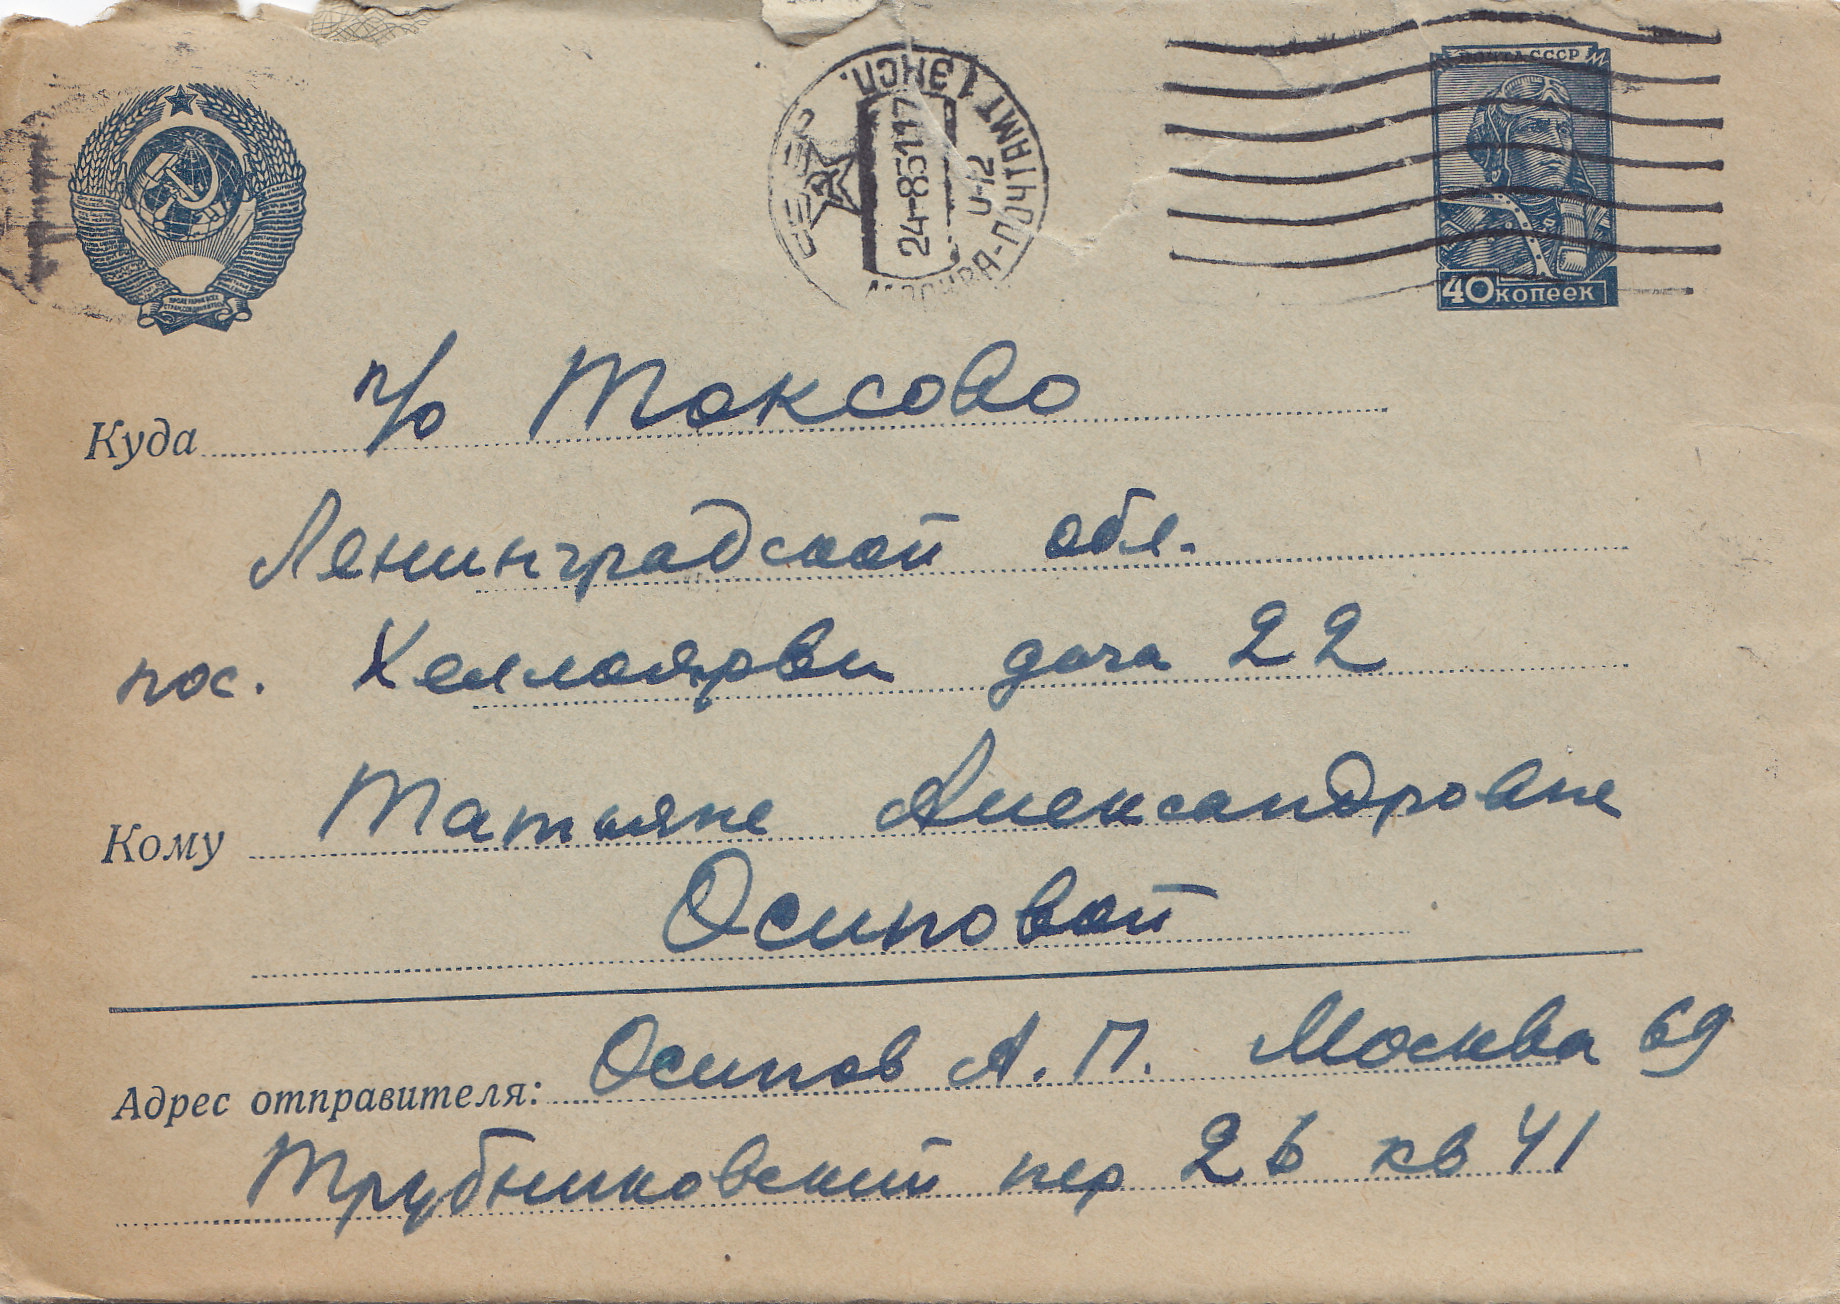 ПОЧТА СССР
40 копеек
МОСКВА-ПОЧТАМТ 1 ЭКСП.
24-8 51 17
Куда п/о Токсово
Ленинградской обл.
пос. Хеллоярви дача 22
Кому Татьяне Александровне
Осиповой
Адрес отправителя: Осипов А. П. Москва 69
Трубниковский пер 26 кв 41